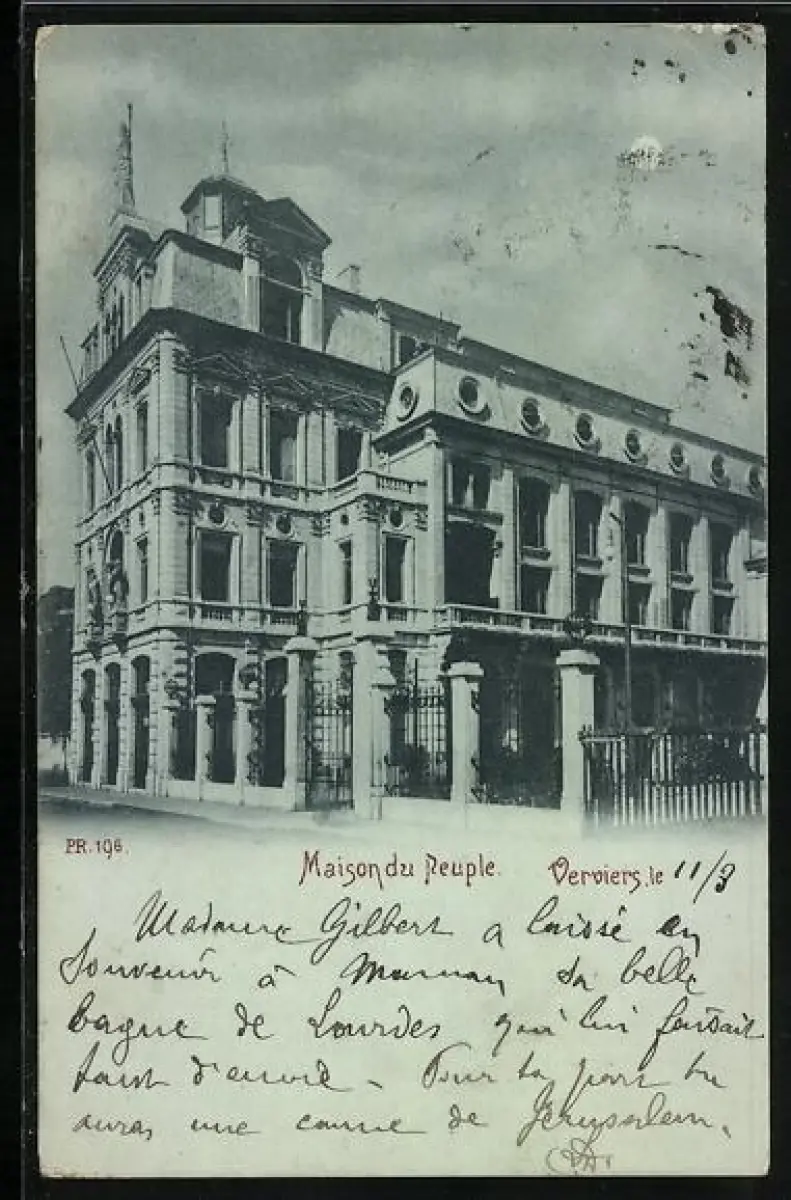 PR. 196.
Maison du Peuple. Verviers, le 11/9
Madame Gilbert a laissé en
souvenir à Maman sa belle
bague de Lourdes qui lui faisait
tant d'envie – Pour ta part tu
auras une canne de Jérusalem.